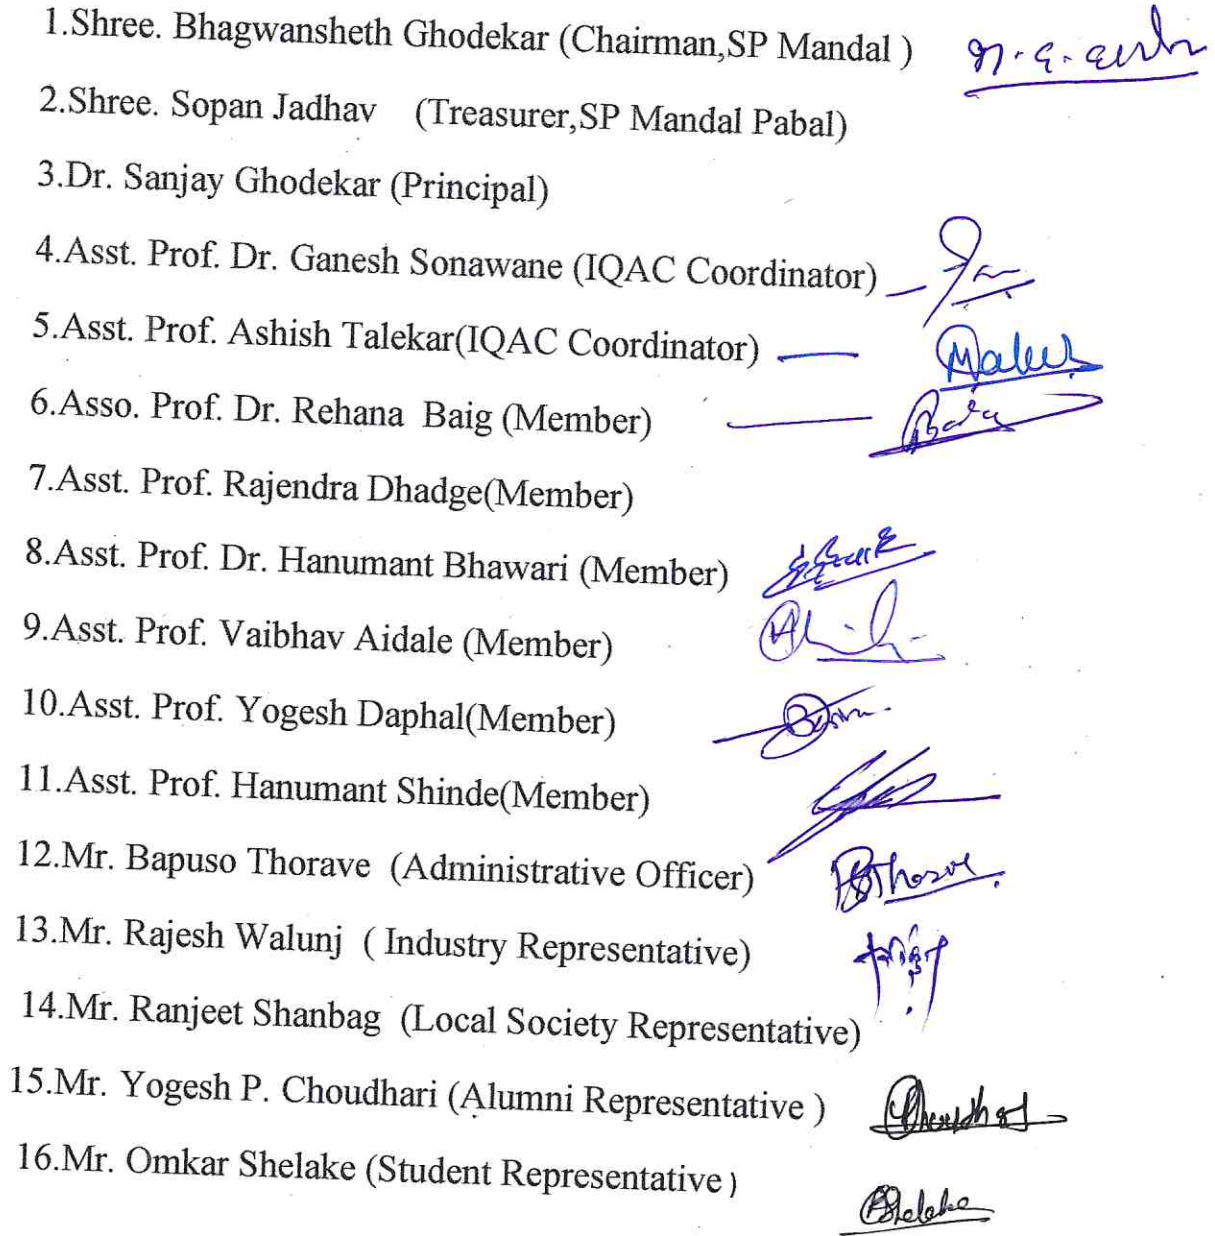 1.Shree. Bhagwansheth Ghodekar (Chairman,SP Mandal )
2.Shree. Sopan Jadhav (Treasurer,SP Mandal Pabal)
3.Dr. Sanjay Ghodekar (Principal)
4.Asst. Prof. Dr. Ganesh Sonawane (IQAC Coordinator)
5.Asst. Prof. Ashish Talekar(IQAC Coordinator)
6.Asso. Prof. Dr. Rehana Baig (Member)
7.Asst. Prof. Rajendra Dhadge(Member)
8.Asst. Prof. Dr. Hanumant Bhawari (Member)
9.Asst. Prof. Vaibhav Aidale (Member)
10.Asst. Prof. Yogesh Daphal(Member)
11.Asst. Prof. Hanumant Shinde(Member)
12.Mr. Bapuso Thorave (Administrative Officer)
13.Mr. Rajesh Walunj ( Industry Representative)
14.Mr. Ranjeet Shanbag (Local Society Representative)
15.Mr. Yogesh P. Choudhari (Alumni Representative )
16.Mr. Omkar Shelake (Student Representative )